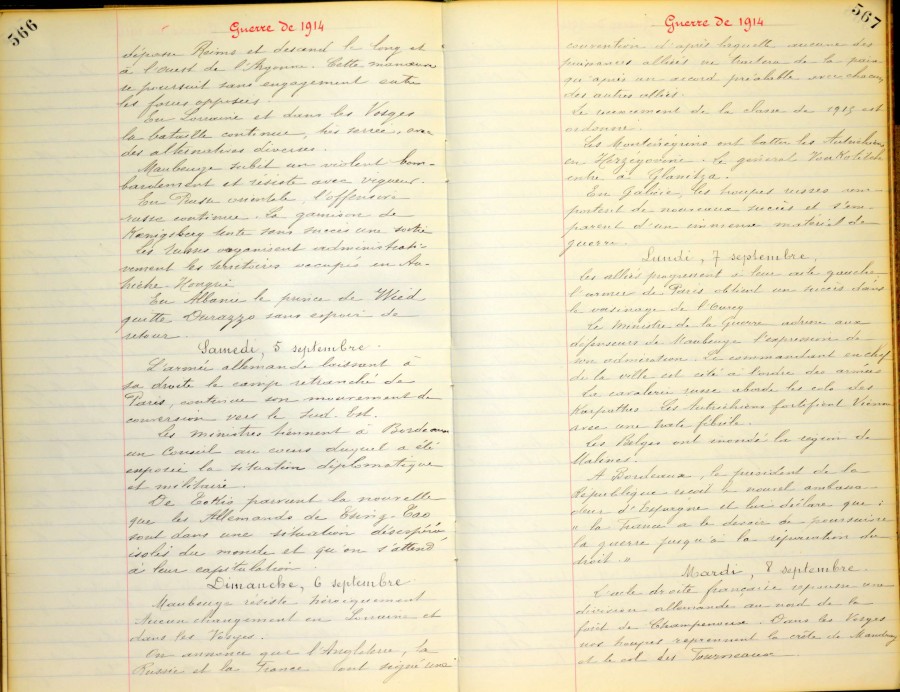 566
Guerre de 1914
dépasse Reims et descend le long et
à l'ouest de l'Argonne. Cette manœuvre
se poursuit sans engagement entre
les forces opposées.
En Lorraine et dans les Vosges
la bataille continue, très serrée, avec
des alternatives diverses.
Maubeuge subit un violent bom-
bardement et résiste avec vigueur.
En Prusse orientale, l'offensive
russe continue. La garnison de
Kœnigsberg tente sans succès une sortie
Les Russes organisent administrati-
vement les territoires occupés en Au-
triche-Hongrie
En Albanie le prince de Wied
quitte Durazzo sans espoir de
retour.
Samedi, 5 septembre.
L'armée allemande laissant à
sa droite le camp retranché de
Paris, continue son mouvement de
conversion vers le Sud-Est.
Les ministres tiennent à Bordeaux
un Conseil au cours duquel a été
exposée la situation diplomatique
et militaire.
De Tokio parvient la nouvelle
que les Allemands de Tsing-Tao
sont dans une situation désespérée,
isolés du monde et qu'on s'attend
à leur capitulation.
Dimanche, 6 septembre
Maubeuge résiste héroïquement
Aucun changement en Lorraine et
dans les Vosges.
On annonce que l'Angleterre, la
Russie et la France ont signé une
567
Guerre de 1914
convention d'après laquelle aucune des
puissances alliées ne traitera de la paix
qu'après un accord préalable avec chacun
des autres alliés.
Le recensement de la classe de 1915 est
ordonné.
Les Monténégrins ont battu les Autrichiens
en Herzégovine. Le général
entre à
En Galicie, les troupes russes rem-
portent de nouveaux succès et s'em-
parent d'un immense matériel de
guerre.
Lundi, 7 septembre.
Les alliés progressent à leur aile gauche
l'armée de Paris obtient un succès dans
le voisinage de l'Ourcq
Le Ministre de la Guerre adresse aux
défenseurs de Maubeuge l'expression de
son admiration. Le commandant en chef
de la ville est cité à l'ordre des armées
La cavalerie russe aborde les cols des
Karpathes. Les Autrichiens fortifient Vienne
avec une hâte fébrile.
Les Belges ont inondé la région de
Malines.
A Bordeaux, le président de la
République reçoit le nouvel ambassa-
deur d'Espagne et lui déclare que :
« la France a le devoir de poursuivre
la guerre jusqu'à la réparation du
droit. »
Mardi, 8 septembre.
L'aile droite française repousse une
division allemande au nord de la
forêt de Champenoux. Dans les Vosges
nos troupes reprennent la crête de Mandray
et le col des Fourneaux